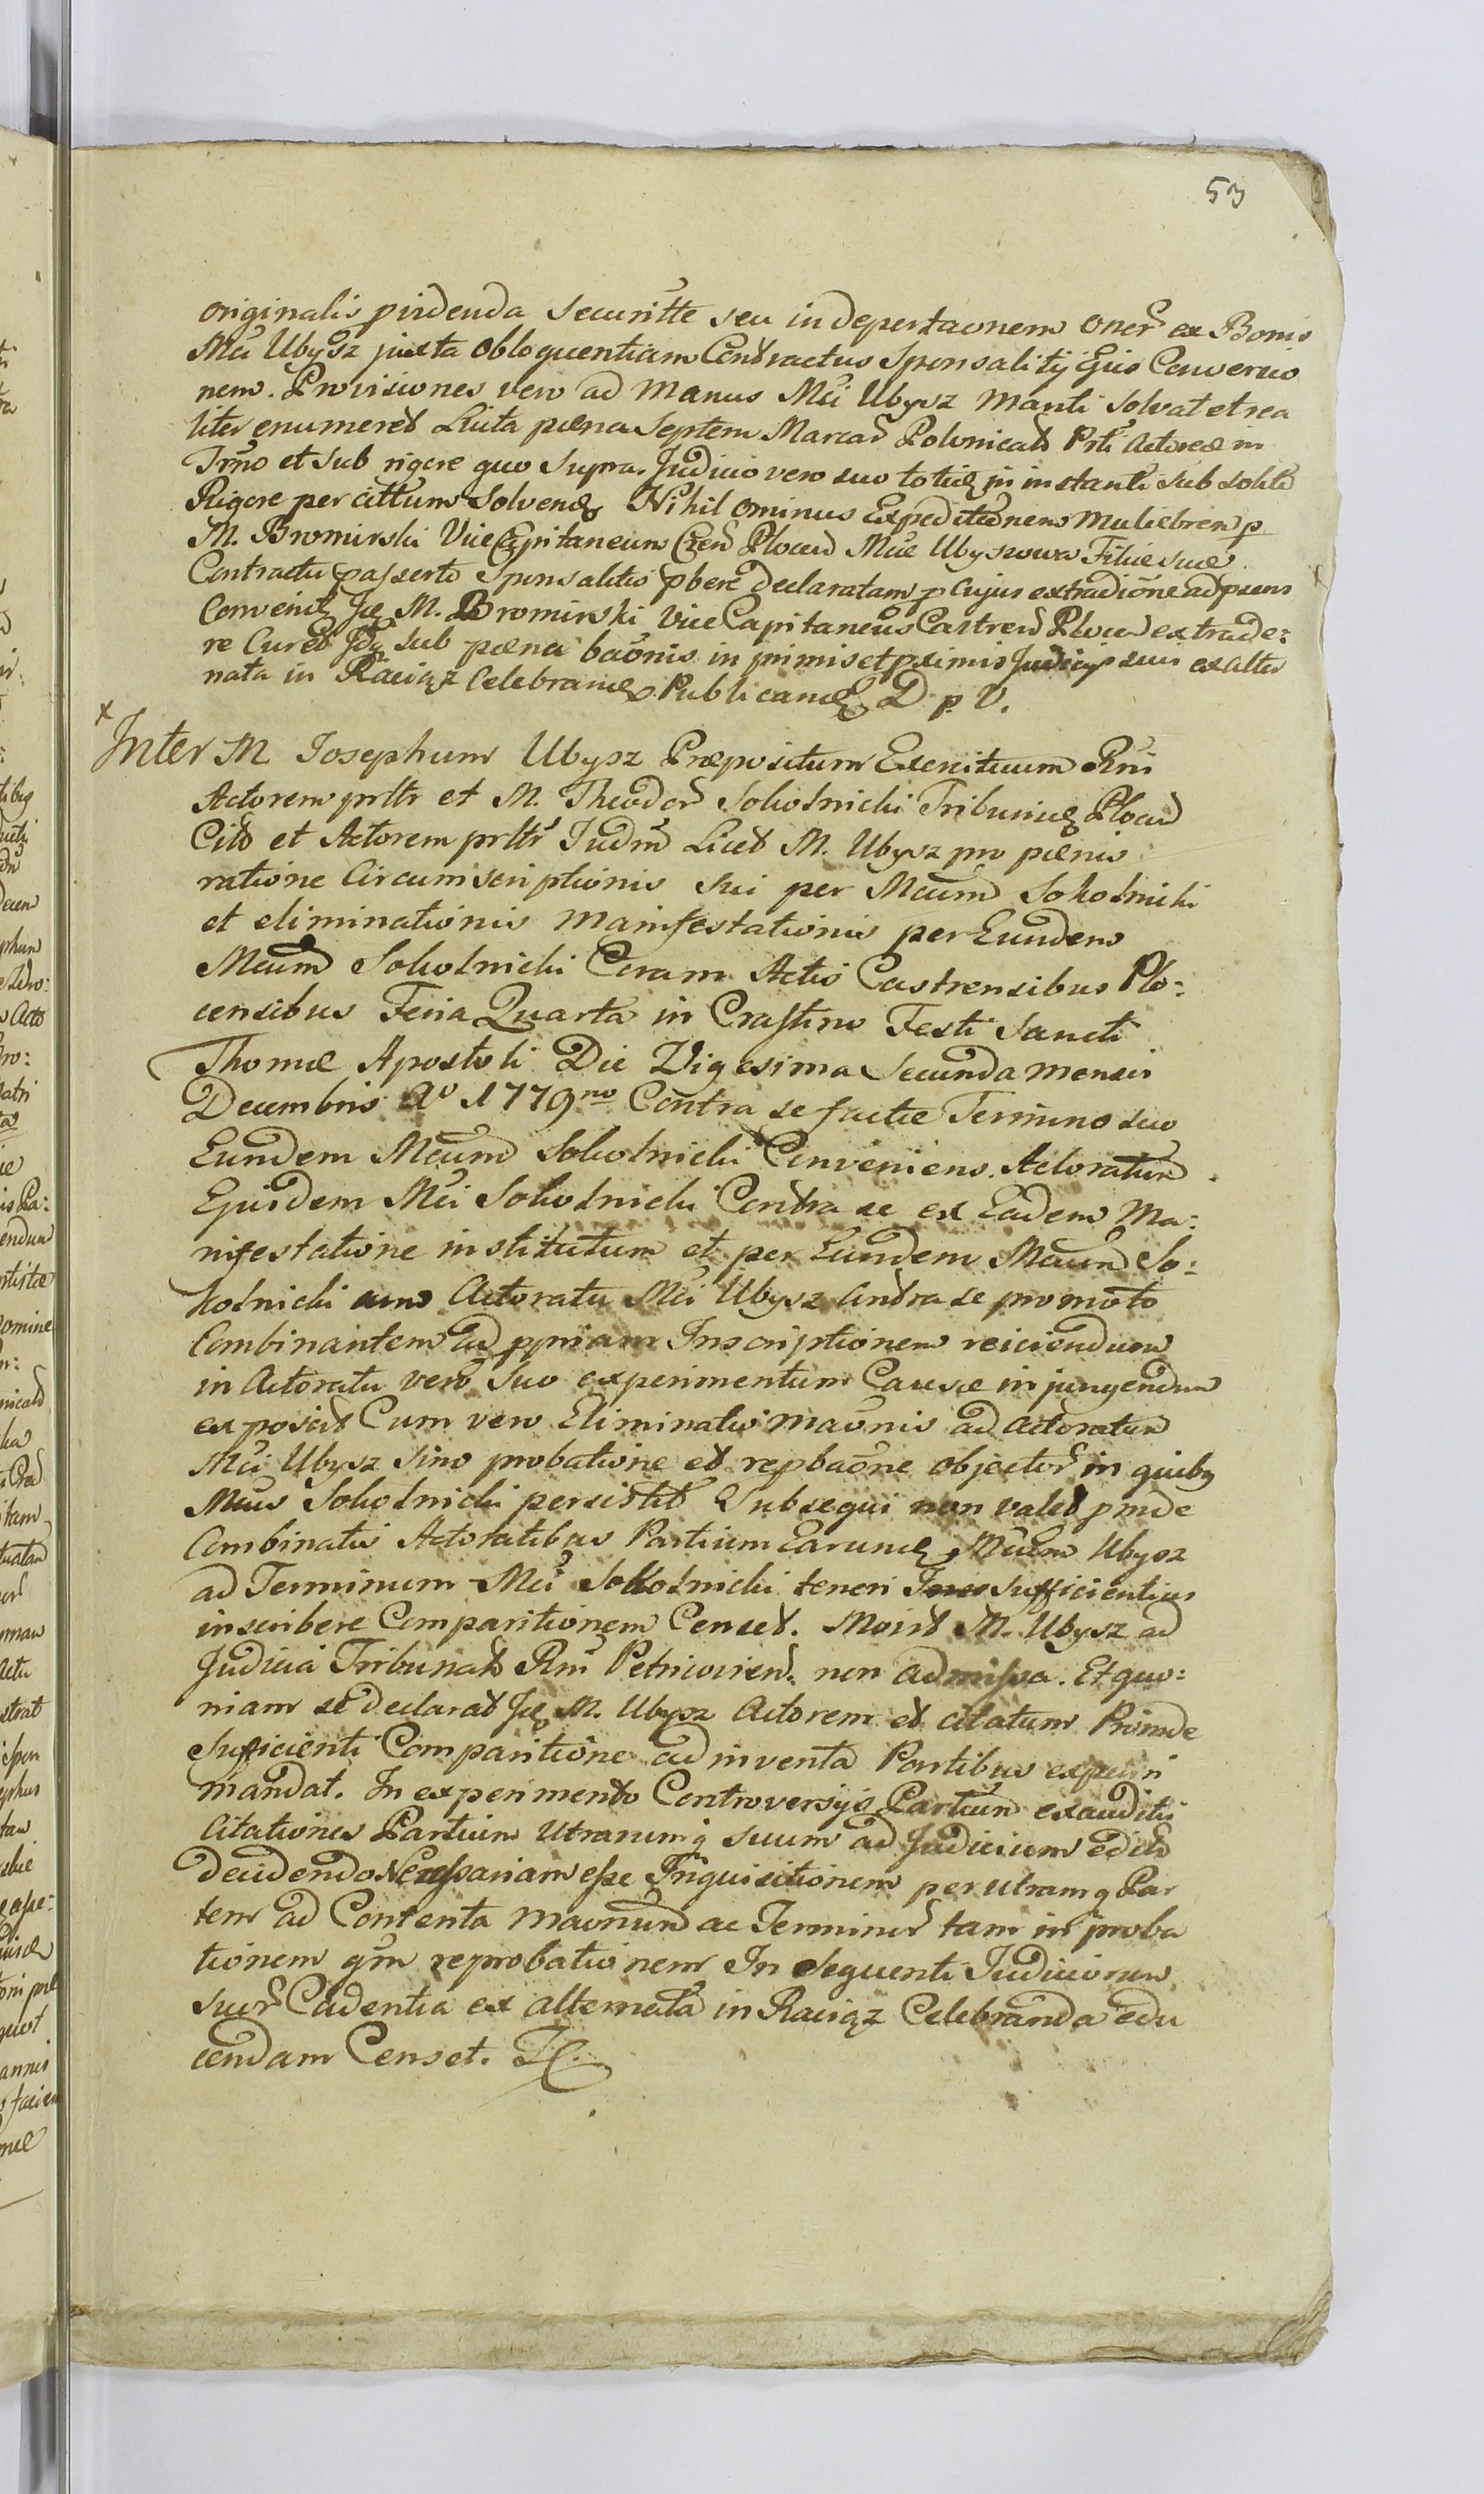 53
originalis pridenda securitte seu in depertaonem oner ex Bonis
Mci Ubysz juxta obloquentiam Contractus Sponsalitij Ejus Conversio
nem. Provisiones vero ad manus Mci Ubysz Manti solvat et rea
liter enumeret Luita pœna Septem Marcar Polonicalt Prti Actoreæ in
Trño et sub rigore quo supra. Judicio vero suo in instanti sub solito
Rigore per cittum Solvend Nihil ominus Expeditionem muliebrem p
M. Bromirski Vice Capitaneum Cren Plocen Mcæ Ubyszowa Filiæ suæ
Contractu passerto Sponsalitio pbere declaratam p cujus extradiõne ad præns
Convenit M. Bromirski Vice Capitaneus Castren Plocen extrade:
re Curet sub pœna baõnis in primis et pximis Judicijs suis ex alter
nata in Raciąz Celebrand Publicand D. p. V.
x
Inter M Josephum Ubysz Præpositum Exercituum Rni
Actorem prltr et M. Theodor Sokolnicki Tribunum Plocen
Citt et Actorem prltr Judm Licet M. Ubysz pro pœnis
ratione Circumscriptionis sui per Mcum Sokolnicki
et eliminationis Manifestationis per Eundem
Mcum Sokolnicki Coram Actis Castrensibus Plo:
censibus Feria Quarta in Crastino Festi Sancti
Thomæ Apostoli Die Vigesima Secunda mensis
Decembris Ao 1779no Contra se factæ Termino suo
Eundem Mcum Sokolnicki Conveniens. Actoratum
Ejusdem Mci Sokolnicki Contra se ex Eadem Ma:
nifestatione institutum et per Eundem Mcum So:
kolnicki cum Actoratu Mci Ubysz Contra se promoto
Combinantem ad ppriam Inscriptionem reiciendum
in Actoratu vero suo experimentum Causæ injungendum
exposcit Cum vero Eliminatio maõnis ad Actoratum
Mci Ubysz sine probatione et repbaõne objector in quibq
Mcus Sokolnicki persistit Subsequi non valet pinde
Combinatis Actoratibus Partium Earund Mcum Ubysz
ad Terminum Mci Sokolnicki teneri sufficientius
inscribere Comparitionem Censet. Moivt M. Ubysz ad
Judicia Tribunalt Rni Petricovien. non admissa. Et quo:
niam se declarat M. Ubysz Actorem et citatum Proinde
Sufficienti Comparitione adinventa Partibus experiri
mandat. In experimento Controversijs Partium exauditis
Citationes Partium Utrarumq suum ad Judicium edito
decidendo Necessariam esse Inquisitionem per utramq Par
tem ad Contenta maõnum ac Terminor tam in proba
tionem qm reprobationem In Sequenti Judiciorum
suor Cadentia ex alternata in Raciąz Celebranda edu
cendam Censet.